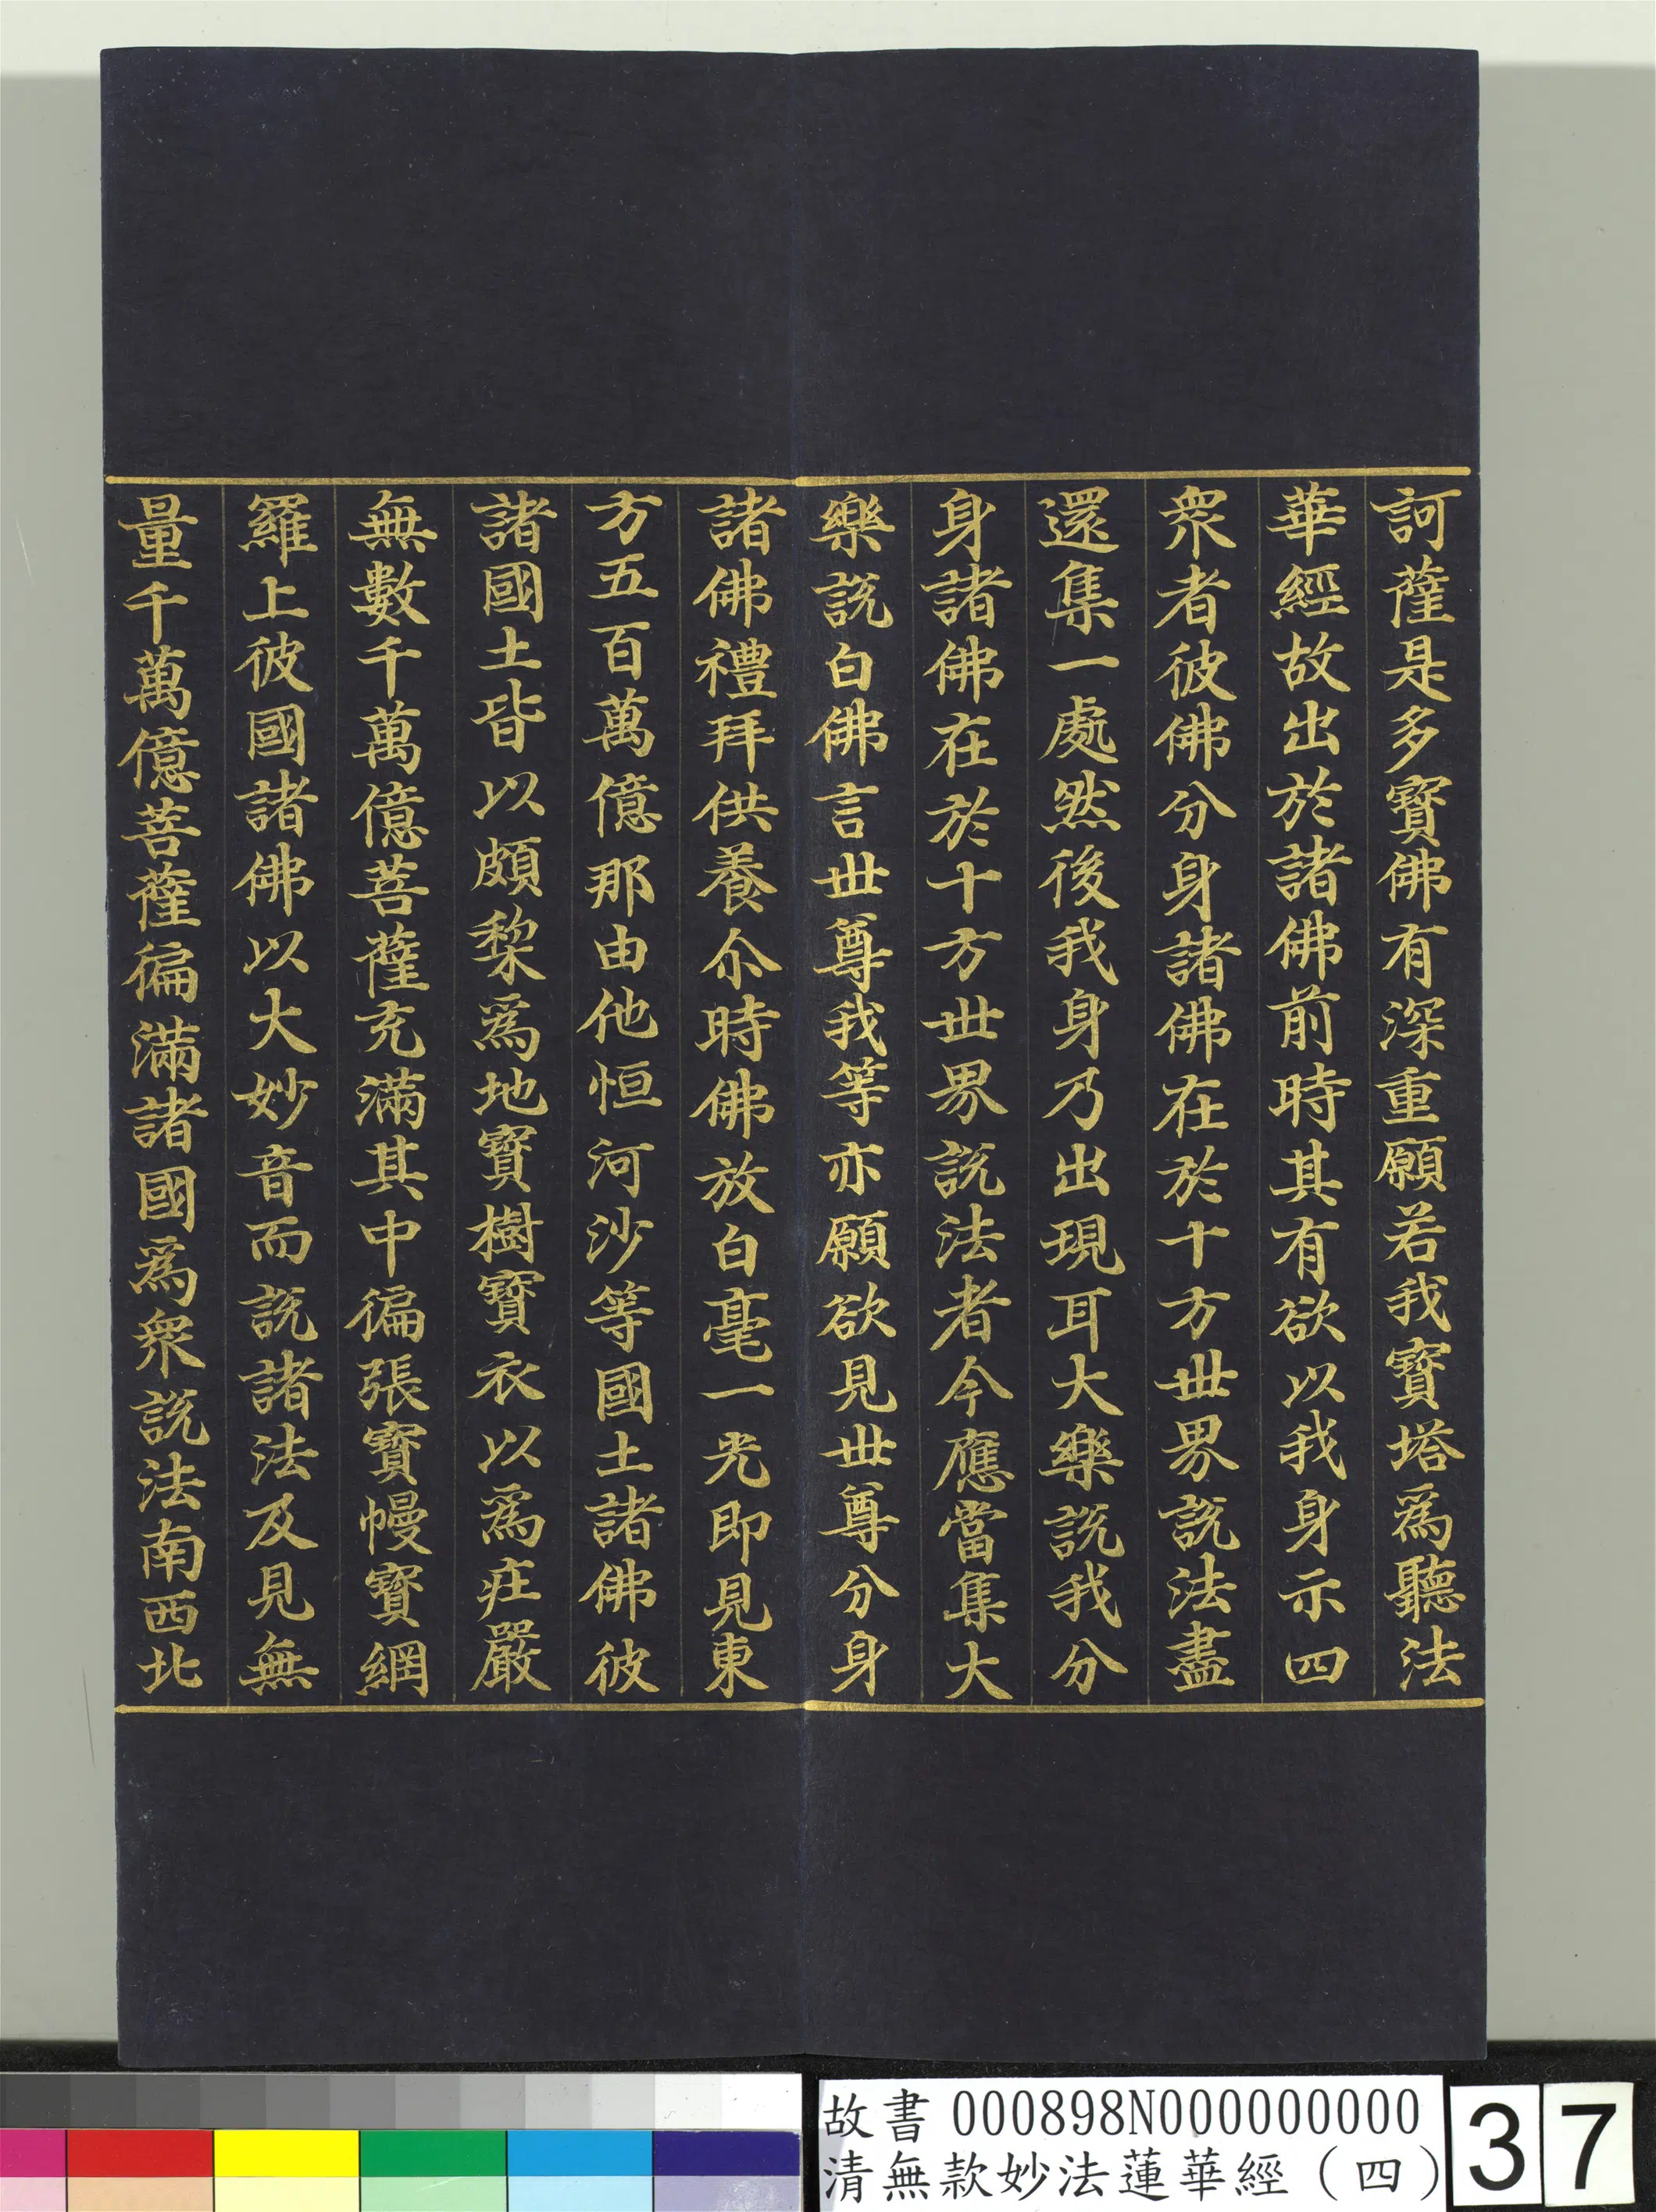 訶薩是多寶佛有深重願若我寶塔爲聽法
華經故出於諸佛前時其有欲以我身示四
衆者彼佛分身諸佛在於十方世界説法盡
還集一處然後我身乃出現耳大樂説我分
身諸佛在於十方世界説法者今應當集大
樂説白佛言世尊我等亦願欲見世尊分身
諸佛禮拜供養尒時佛放白毫一光即見東
方五百萬億那由他恒河沙等國土諸佛彼
諸國土皆以頗棃爲地寶樹寶衣以爲莊嚴
無數千萬億菩薩充滿其中徧張寶幔寶網
羅上彼國諸佛以大妙音而説諸法及見無
量千萬億菩薩徧滿諸國爲衆説法南西北
故書 000898N000000000
清無款妙法蓮華經（四）
37